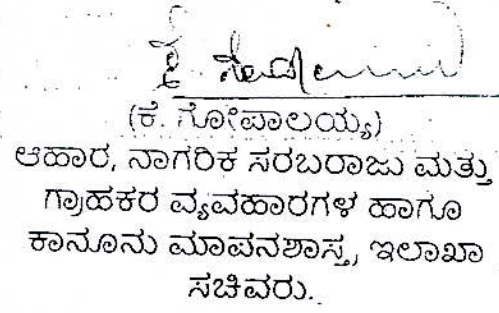 (ಕೆ. ಗೋಪಾಲಯ್ಯ)
ಆಹಾರ, ನಾಗರಿಕ ಸರಬರಾಜು ಮತ್ತು
ಗ್ರಾಹಕರ ವ್ಯವಹಾರಗಳ ಹಾಗೂ
ಕಾನೂನು ಮಾಪನಶಾಸ್ತ್ರ, ಇಲಾಖಾ
ಸಚಿವರು.